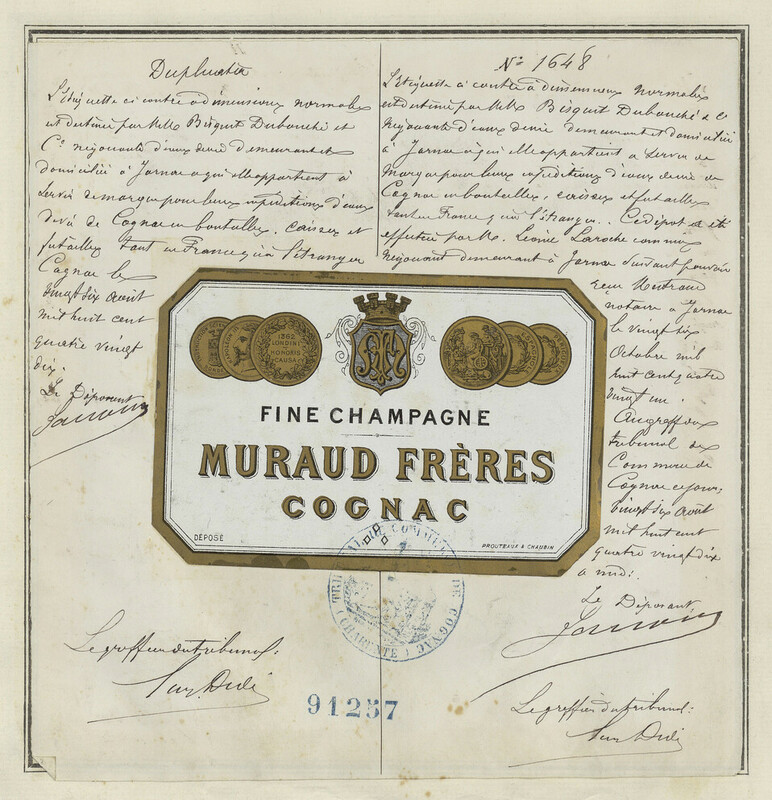 Duplicata
L'étiquette ci contre a dimensions normales
est destinée par MM. Bisquit Dubouché et
Cie négociants d'eaux de vie demeurant et
domiciliés à Jarnac à qui elle appartient à
servir de marque pour leurs expéditions d'eaux
de vie de Cognac en bouteilles, caisses et
futailles tant en France qu'à l'étranger
Cognac le
vingt six août
mil huit cent
quatre vingt
dix.
Le Déposant
Le greffier du tribunal:
No 1648
L'étiquette ci contre a dimensions normales
est destinée par MM. Bisquit Dubouché & Cie
négociants d'eaux de vie demeurant et domiciliés
à Jarnac à qui elle appartient à servir de
marque pour leurs expéditions d'eaux de vie de
Cognac en bouteilles, caisses et futailles
tant en France qu'à l'étranger. Ce dépôt a été
effectué par M. Laroche comme
négociant demeurant à Jarnac suivant pouvoir
reçu
notaire à Jarnac
le vingt six
Octobre mil
huit cent quatre
vingt un.
Au greffe du
tribunal de
Commerce de
Cognac ce jour,
vingt six août
mil huit cent
quatre vingt dix
à midi.
Le Déposant
Le greffier du tribunal:
1862
LONDINI
HONORIS
CAUSA
FINE CHAMPAGNE
MURAUD FRÈRES
COGNAC
DÉPOSÉ
PROUTEAUX & CHAUBIN
TRIBUNAL DE COMMERCE DE COGNAC
(CHARENTE)
91257